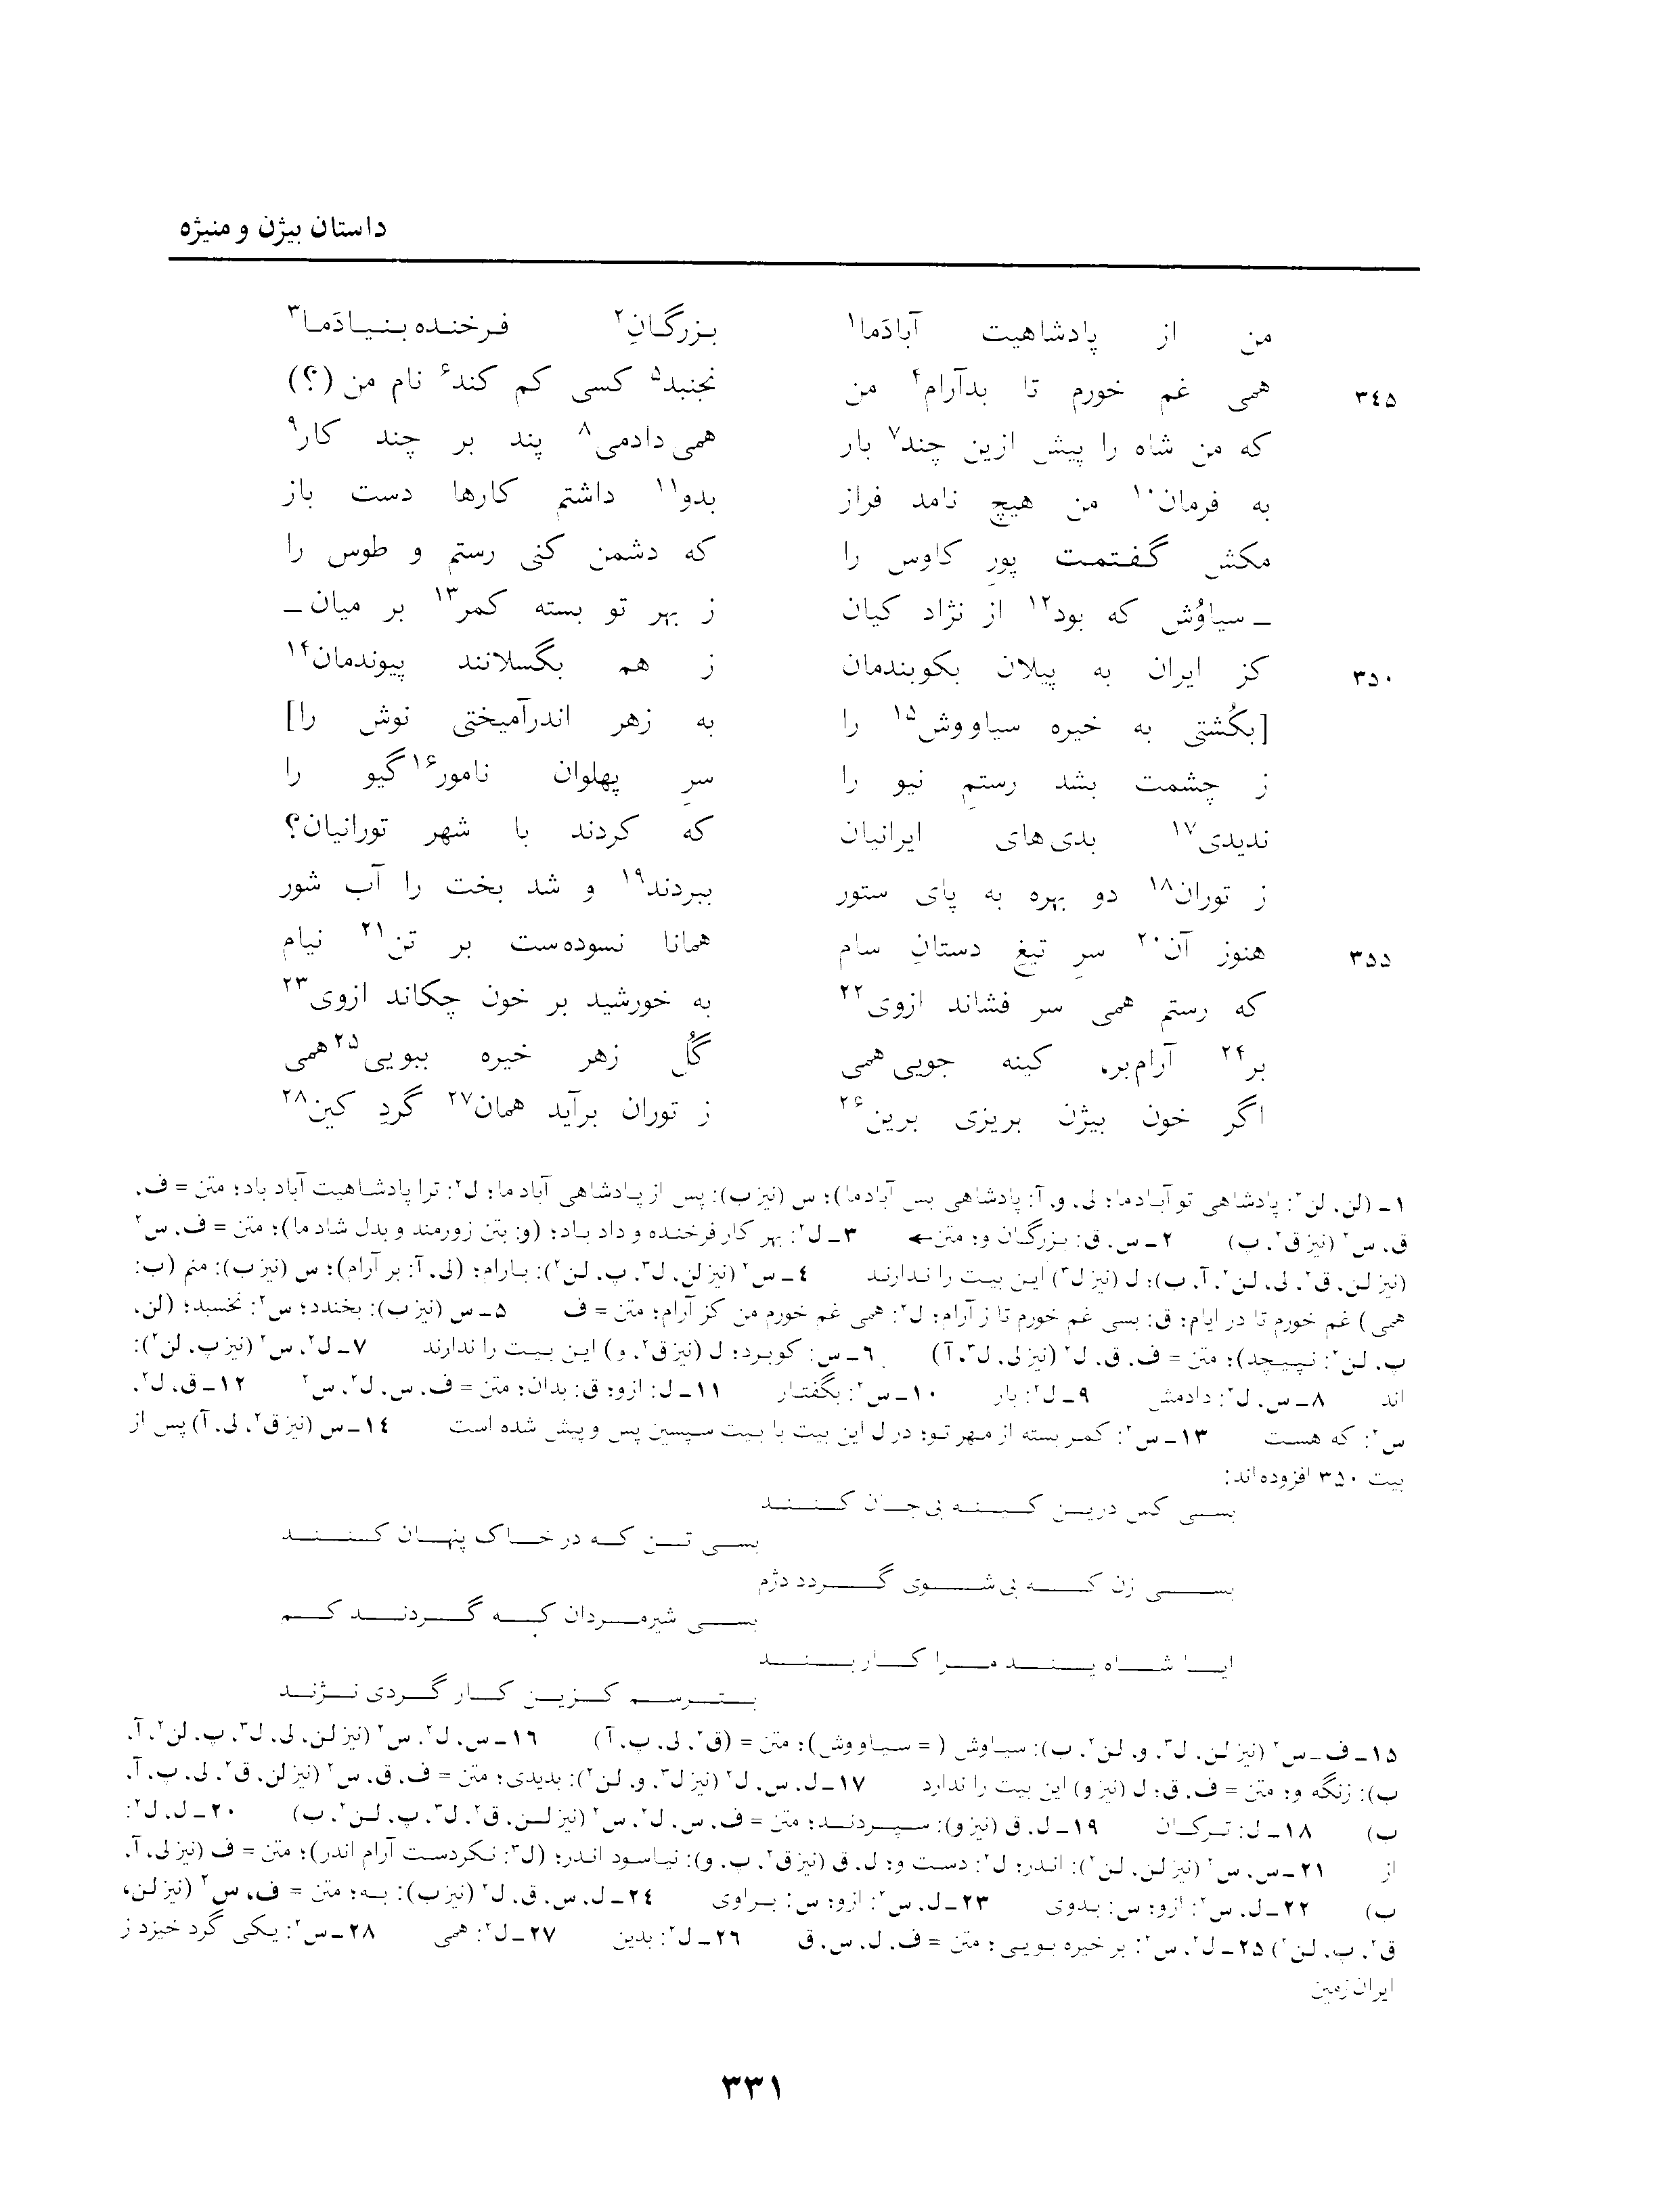 داستان بیژن و منیژه
من از پادشاهیت آبادَما۱ بزرگانِ۲ فرخنده بنیادَما۳
۳۴۵ همی غم خورم تا بدآرام۴ من نجنبد۵ کسی کم کند۶ نام من (؟)
که من شاه را پیش ازین چند۷ بار همی دادمی۸ پند بر چند کار۹
به فرمان۱۰ من هیچ نامد فراز بدو۱۱ داشتم کارها دست باز
مکش گفتمت پورِ کاوس را که دشمن کنی رستم و طوس را
ـ سیاوُش که بود۱۲ از نژاد کیان ز بهر تو بسته کمر۱۳ بر میان ـ
۳۵۰ کز ایران به پیلان بکوبندمان ز هم بگسلانند پیوندمان۱۴
[بکُشتی به خیره سیاووش۱۵ را به زهر اندرآمیختی نوش را]
ز چشمت بشد رستمِ نیو را سرِ پهلوان نامور۱۶ گیو را
ندیدی۱۷ بدی‌های ایرانیان که کردند با شهر تورانیان؟
ز توران۱۸ دو بهره به پای ستور ببردند۱۹ و شد بخت را آب شور
۳۵۵ هنوز آن۲۰ سرِ تیغِ دستانِ سام همانا نسوده‌ست بر تن۲۱ نیام
که رستم همی سر فشاند ازوی۲۲ به خورشید بر خون چکاند ازوی۲۳
بر۲۴ آرام‌بر، کینه جویی همی گُل زهر خیره ببویی۲۵ همی
اگر خون بیژن بریزی برین۲۶ ز توران برآید همان۲۷ گردِ کین۲۸
۱ـ (لن، لن۲: پادشاهی تو آبادما؛ لی، و، آ: پادشاهی بس آبادما)؛ س (نیز ب): پس از پادشاهی آبادما؛ ل۲: ترا پادشاهیت آباد باد؛ متن = ف،
ق، س۲ (نیز ق۲، ب) ۲ـ س، ق: بزرگان و؛ متن← ۳ـ ل۲: بهر کار فرخنده و داد باد؛ (و: بتن زورمند و بدل شادما)؛ متن = ف، س۲
(نیز لن، ق۲، لی، لن۲، آ، ب)؛ ل (نیز ل۳) این بیت را ندارند ۴ـ س۲ (نیز لن، ل۳، پ، لن۲): بارام؛ (لی، آ: بر آرام)؛ س (نیز ب): منم (ب:
همی) غم خورم تا در ایام؛ ق: بسی غم خورم تا ز آرام؛ ل۲: همی غم خورم من کز آرام؛ متن = ف ۵ـ س (نیز ب): بخندد؛ س۲: نخسبد؛ (لن،
پ، لن۲: نپیچد)؛ متن = ف، ق، ل۲ (نیز لی، ل۳، آ) ۶ـ س: کوبرد؛ ل (نیز ق۲، و) این بیت را ندارند ۷ـ ل۲، س۲ (نیز پ، لن۲):
اند ۸ـ س، ل۲: دادمش ۹ـ ل۲: بار ۱۰ـ س۲: بگفتار ۱۱ـ ل: ازو؛ ق: بدان؛ متن = ف، س، ل۲، س۲ ۱۲ـ ق، ل۲،
س۲: که هست ۱۳ـ س۲: کمر بسته از مهر تو؛ در ل این بیت با بیت سپسین پس و پیش شده است ۱۴ـ س (نیز ق۲، لی، آ) پس از
بیت ۳۵۰ افزوده‌اند:
بسی کس درین کینه بی‌جان کنند
بسی تن که در خاک پنهان کنند
بسی زن که بی‌شوی گردد دژم
بسی شیرمردان که گردند کم
ایا شاه پند مرا کار بند
بترسم کزین کار گردی نژند
۱۵ـ ف ـ س۲ (نیز لن، ل۳، و، لن۲، ب): سیاوش (= سیاووش)؛ متن = (ق۲، لی، پ، آ) ۱۶ـ س، ل۲، س۲ (نیز لن، لی، ل۳، پ، لن۲، آ،
ب): زنگه و؛ متن = ف، ق؛ ل (نیز و) این بیت را ندارد ۱۷ـ ل، س، ل۲ (نیز ل۳، و، لن۲): بدیدی؛ متن = ف، ق، س۲ (نیز لن، ق۲، لی، پ، آ،
ب) ۱۸ـ ل: ترکان ۱۹ـ ل، ق (نیز و): سپردند؛ متن = ف، س، ل۲، س۲ (نیز لن، ق۲، ل۳، پ، لن۲، ب) ۲۰ـ ل، ل۲:
از ۲۱ـ س، س۲ (نیز لن، لن۲): اندر؛ ل۲: دست و؛ ل، ق (نیز ق۲، پ، و): نیاسود اندر؛ (ل۳: نکردست آرام اندر)؛ متن = ف (نیز لی، آ،
ب) ۲۲ـ ل، س۲: ازو؛ س: بدوی ۲۳ـ ل، س۲: ازو؛ س: براوی ۲۴ـ ل، س، ق، ل۲ (نیز ب): به؛ متن = ف، س۲ (نیز لن،
ق۲، پ، لن۲) ۲۵ـ ل۲، س۲: بر خیره بویی؛ متن = ف، ل، س، ق ۲۶ـ ل۲: بدین ۲۷ـ ل۲: همی ۲۸ـ س۲: یکی گرد خیزد ز
ایران‌زمین
۳۳۱